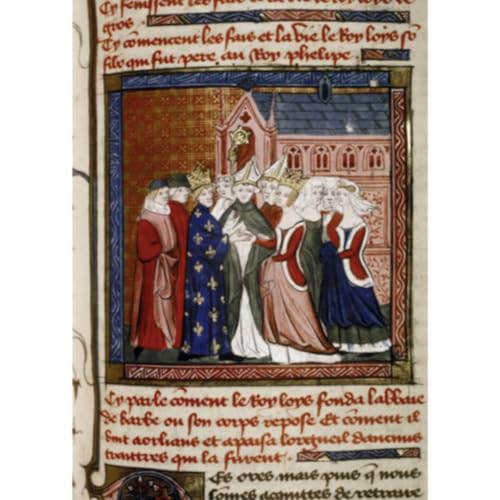 gros.
Cy cõmencent les fais et la vie le Roy loys sõ
filz qui fut pere au Roy phelipe.
Cy parle cõment le Roy loys fonda labbaie
de barbe ou son corps repose Et cõment il
vint a orlians et apaisa lorgueil daucuns
qui la furent.
Es ores mais puis q nous
somes acquittes de retraire